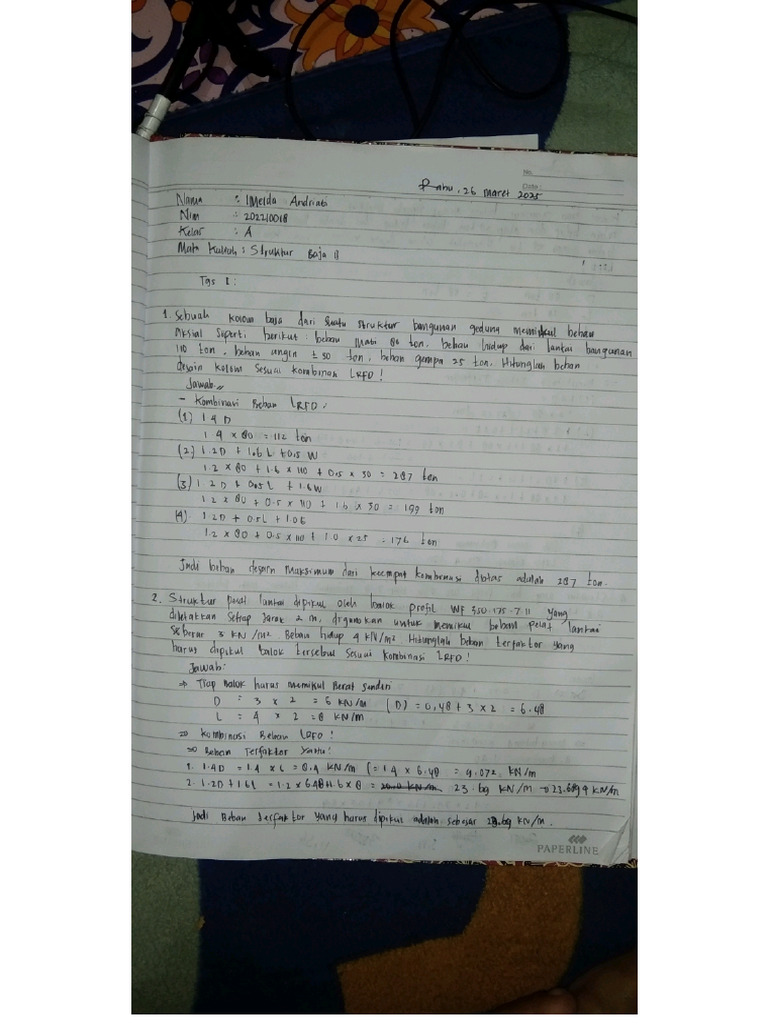 No.
Date :
Rabu, 26 Maret 2025
Nama : Imelda Andriati
Nim : 202210018
Kelas : A
Mata Kuliah : Struktur Baja II
Tgs 1 :
1. Sebuah kolom baja dari suatu struktur bangunan gedung memikul beban
Aksial Seperti berikut : beban mati 80 ton, beban hidup dari lantai bangunan
110 ton, beban angin ± 30 ton, beban gempa 25 ton. Hitunglah beban
desain kolom Sesuai kombinasi LRFD !
Jawab //
- Kombinasi Beban LRFD :
(1) 1.4 D
1.4 × 80 = 112 ton
(2) 1.2D + 1.6 L + 0.5 W
1.2 × 80 + 1.6 × 110 + 0.5 × 30 = 287 ton
(3) 1.2D + 0.5 L + 1.6W
1.2 × 80 + 0.5 × 110 + 1.6 × 30 = 199 ton
(4). 1.2D + 0.5L + 1.0E
1.2 × 80 + 0.5 × 110 + 1.0 × 25 = 176 ton
Jadi beban desain maksimum dari keempat kombinasi diatas adalah 287 ton.
2. Struktur pelat lantai dipikul oleh balok profil WF 350.175.7.11 yang
diletakkan Setiap Jarak 2 m, digunakan untuk memikul beban pelat lantai
sebesar 3 KN/m². Beban hidup 4 KN/m². Hitunglah beban terfaktor yang
harus dipikul balok tersebut Sesuai Kombinasi LRFD !
Jawab :
⇒ Tiap Balok harus memikul Berat Sendiri
D = 3 × 2 = 6 KN/m (D) = 0,48 + 3 × 2 = 6.48
L = 4 × 2 = 8 KN/m
⇒ Kombinasi Beban LRFD !
⇒ Beban Terfaktor yaitu :
1. 1.4D = 1.4 × 6 = 8.4 KN/m (= 1.4 × 6.48 = 9.072 KN/m
2. 1.2D + 1.6L = 1.2 × 6.48 + 1.6 × 8 = 20.0 KN/m 23.69 KN/m → 23.6894 KN/m
Jadi Beban terfaktor yang harus dipikul adalah sebesar 23.69 KN/m.
PAPERLINE